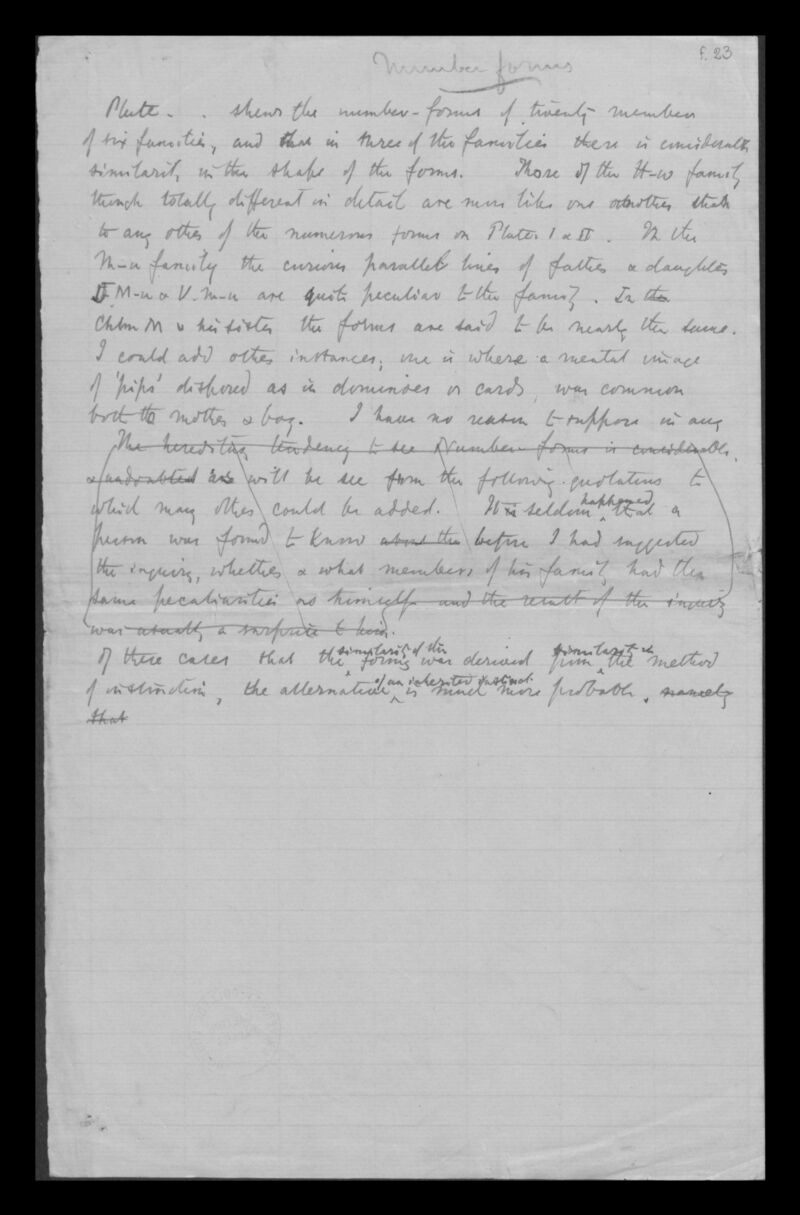 f. 23
Number forms
Plate - . shews the number-forms of twenty members
of six families, and that in three of the families there is considerable
similarity in the shape of the forms. Those of the H-w family
though totally different in detail are more like one another than
to any other of the numerous forms on Plates I & II. In the
M-n family the curious parallel lines of father & daughter
II. M-n & V. M-n are quite peculiar to the family. In the
& his sister the forms are said to be nearly the same.
I could add other instances; one is where a mental image
of 'pips' disposed as in dominoes or cards, was common
both to mother & boy. I have no reason to suppose in any
The hereditary tendency to see Number forms is considerable.
& undoubted as will be see from the following quotations to
which many others could be added. It is seldom happened that a
person was found to know about the before I had suggested
the inquiry, whether & what members of his family had the
same peculiarities as himself and the result of the inquiry
was usually a surprise to him.
of these cases that the similarity of the forms was derived from similarity in the method
of instruction, the alternative of an inherited instinct is much more probable. namely
that